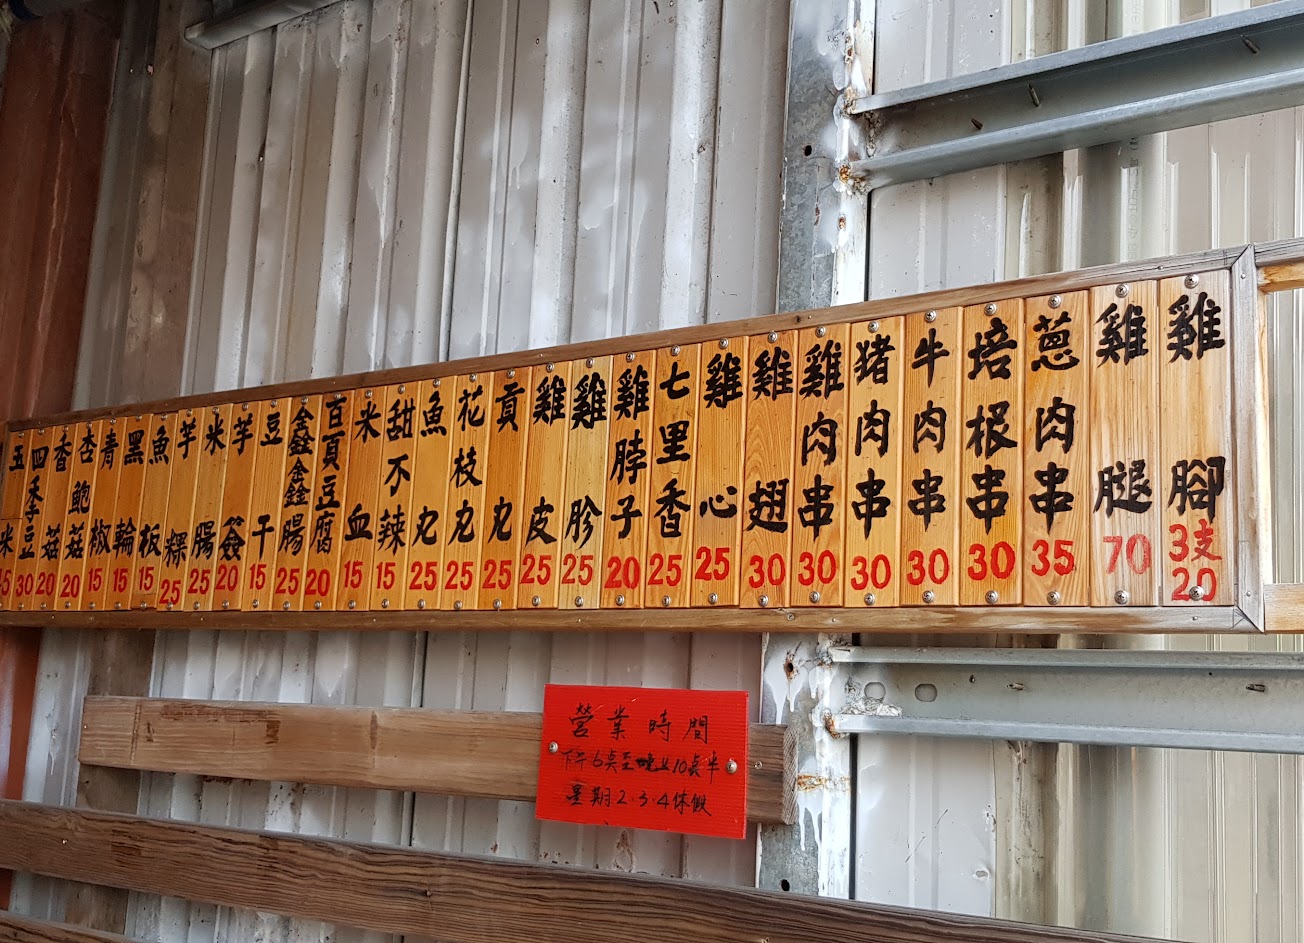 雞腳 3支20
雞腿 70
蔥肉串 35
培根串 30
牛肉串 30
猪肉串 30
雞肉串 30
雞翅 30
雞心 25
七里香 25
雞脖子 20
雞胗 25
雞皮 25
貢丸 25
花枝丸 25
魚丸 25
甜不辣 15
米血 15
百頁豆腐 20
鑫鑫腸 25
豆干 15
芋簽 20
米腸 25
芋粿 25
魚板 15
黑輪 15
青椒 15
杏鮑菇 20
香菇 20
四季豆 30
玉米
營業時間
下午6奌至晚上10奌半
星期2.3.4休假